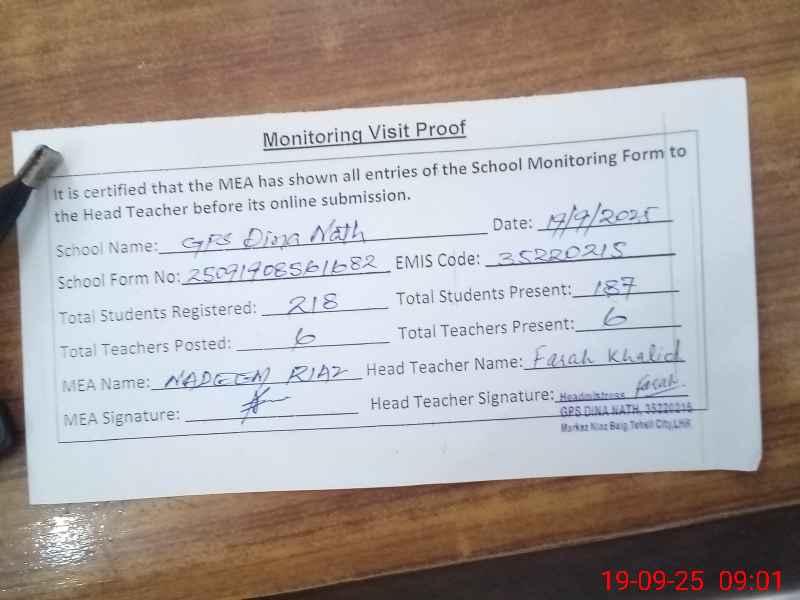 Monitoring Visit Proof
It is certified that the MEA has shown all entries of the School Monitoring Form to
the Head Teacher before its online submission.
School Name: GPS Dina Nath Date: 19/9/2025
School Form No: 25091908561682 EMIS Code: 35220215
Total Students Registered: 218 Total Students Present: 187
Total Teachers Posted: 6 Total Teachers Present: 6
MEA Name: NADEEM RIAZ Head Teacher Name: Farah Khalid
MEA Signature: Head Teacher Signature: Farah
Headmistress
GPS DINA NATH, 35220215
Markaz Niaz Baig Tehsil City, LHR
19-09-25 09:01